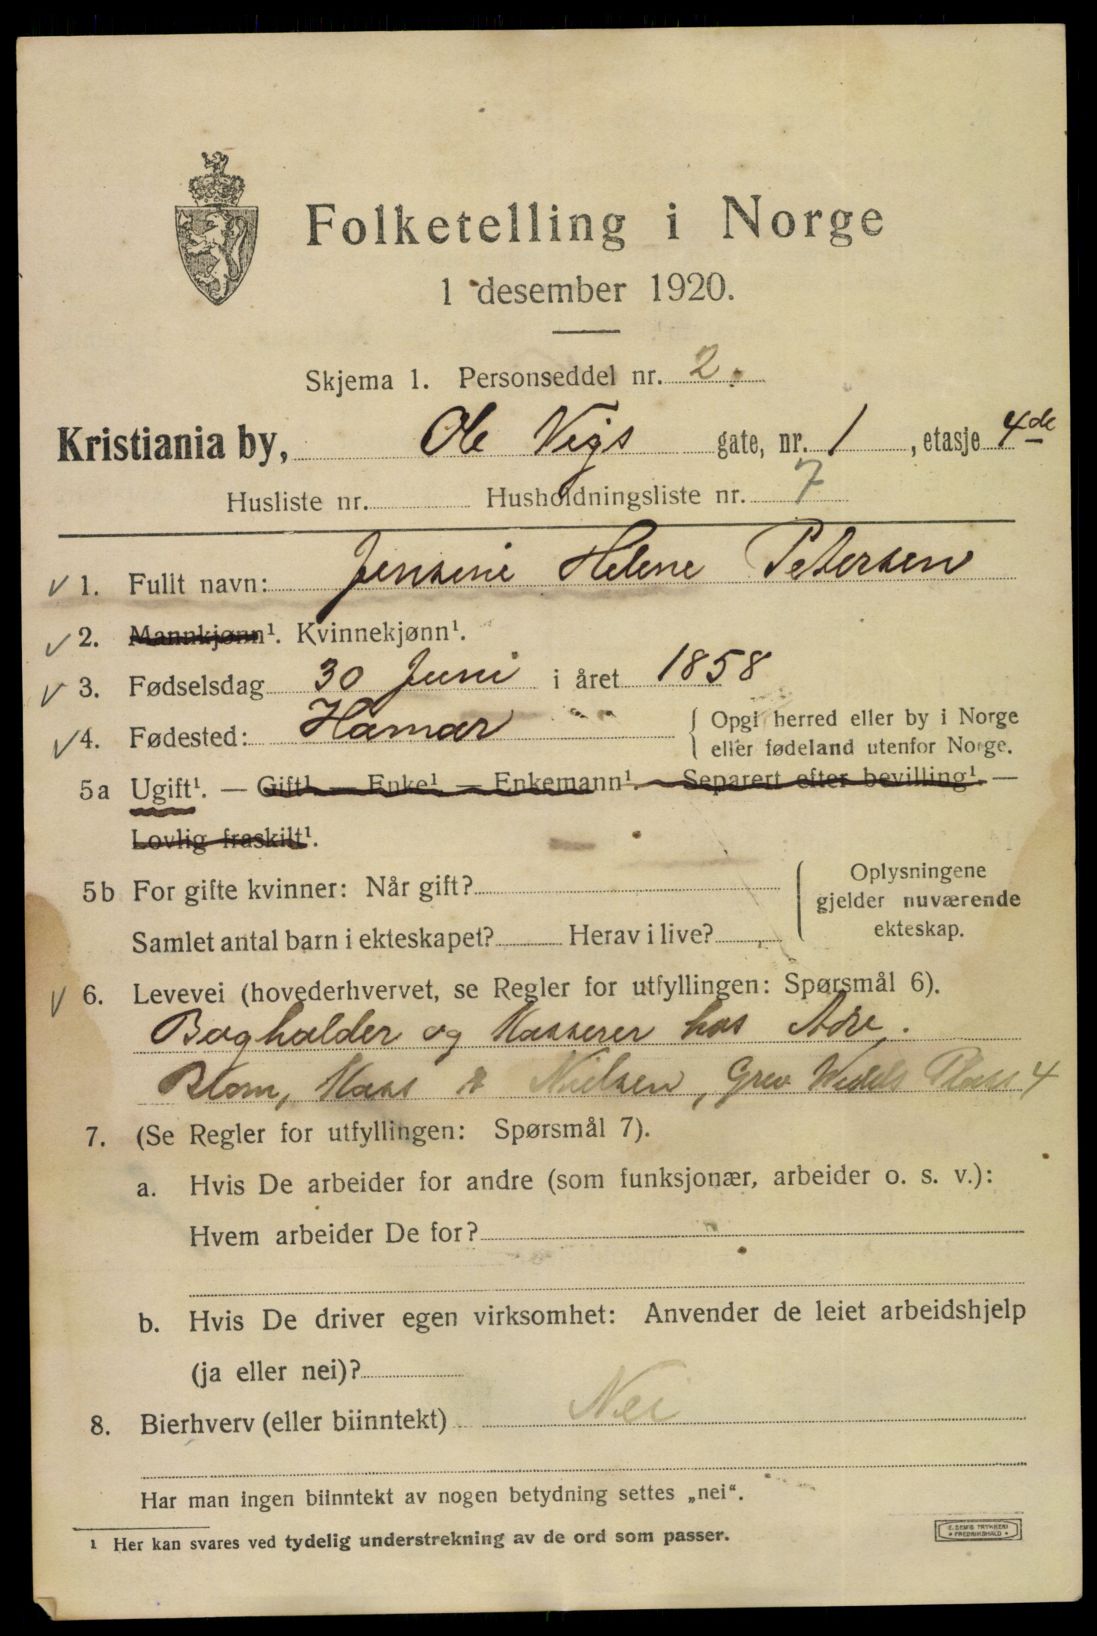 Folketelling i Norge
1 desember 1920.
Skjema 1. Personseddel nr. 2.
Kristiania by, Ole Vigs gate, nr. 1, etasje 4de
Husliste nr. Husholdningsliste nr. 7
1. Fullt navn: Jensine Helene Petersen
2. Mannkjønn¹. Kvinnekjønn¹.
3. Fødselsdag 30 Juni i året 1858
4. Fødested: Hamar { Opgi herred eller by i Norge
eller fødeland utenfor Norge.
5a Ugift¹. — Gift¹. — Enke¹ — Enkemann¹. — Separert efter bevilling¹. —
Lovlig fraskilt¹.
5b For gifte kvinner: Når gift? { Oplysningene
gjelder nuværende
Samlet antal barn i ekteskapet? Herav i live? ekteskap.
6. Levevei (hovederhvervet, se Regler for utfyllingen: Spørsmål 6).
Bogholder og Kasserer hos Adv.
Blom, Haks & Nielsen, Grev Wedels Plass 4
7. (Se Regler for utfyllingen: Spørsmål 7).
a. Hvis De arbeider for andre (som funksjonær, arbeider o. s. v.):
Hvem arbeider De for?
b. Hvis De driver egen virksomhet: Anvender de leiet arbeidshjelp
(ja eller nei)?
8. Bierhverv (eller biinntekt) Nei
Har man ingen biinntekt av nogen betydning settes „nei“.
¹ Her kan svares ved tydelig understrekning av de ord som passer.
E. SEMS TRYKKERI
FREDRIKSHALD